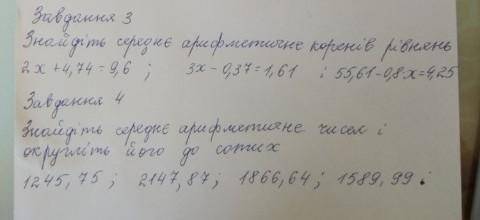 Завдання 3
Знайдіть середнє арифметичне коренів рівнянь
2x+4,74=9,6 ; 3x-0,37=1,61 і 55,61-0,8x=4,25
Завдання 4
Знайдіть середнє арифметичне чисел і
округліть його до сотих
1245,75 ; 2147,87 ; 1866,64 ; 1589,99 ;